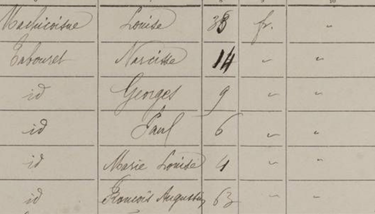 Machicoisne Louise 38 fr. "
Tabouret Narcisse 14 " "
id Georges 9 " "
id Paul 6 " "
id Marie Louise 4 " "
id François Augustin 63 " "